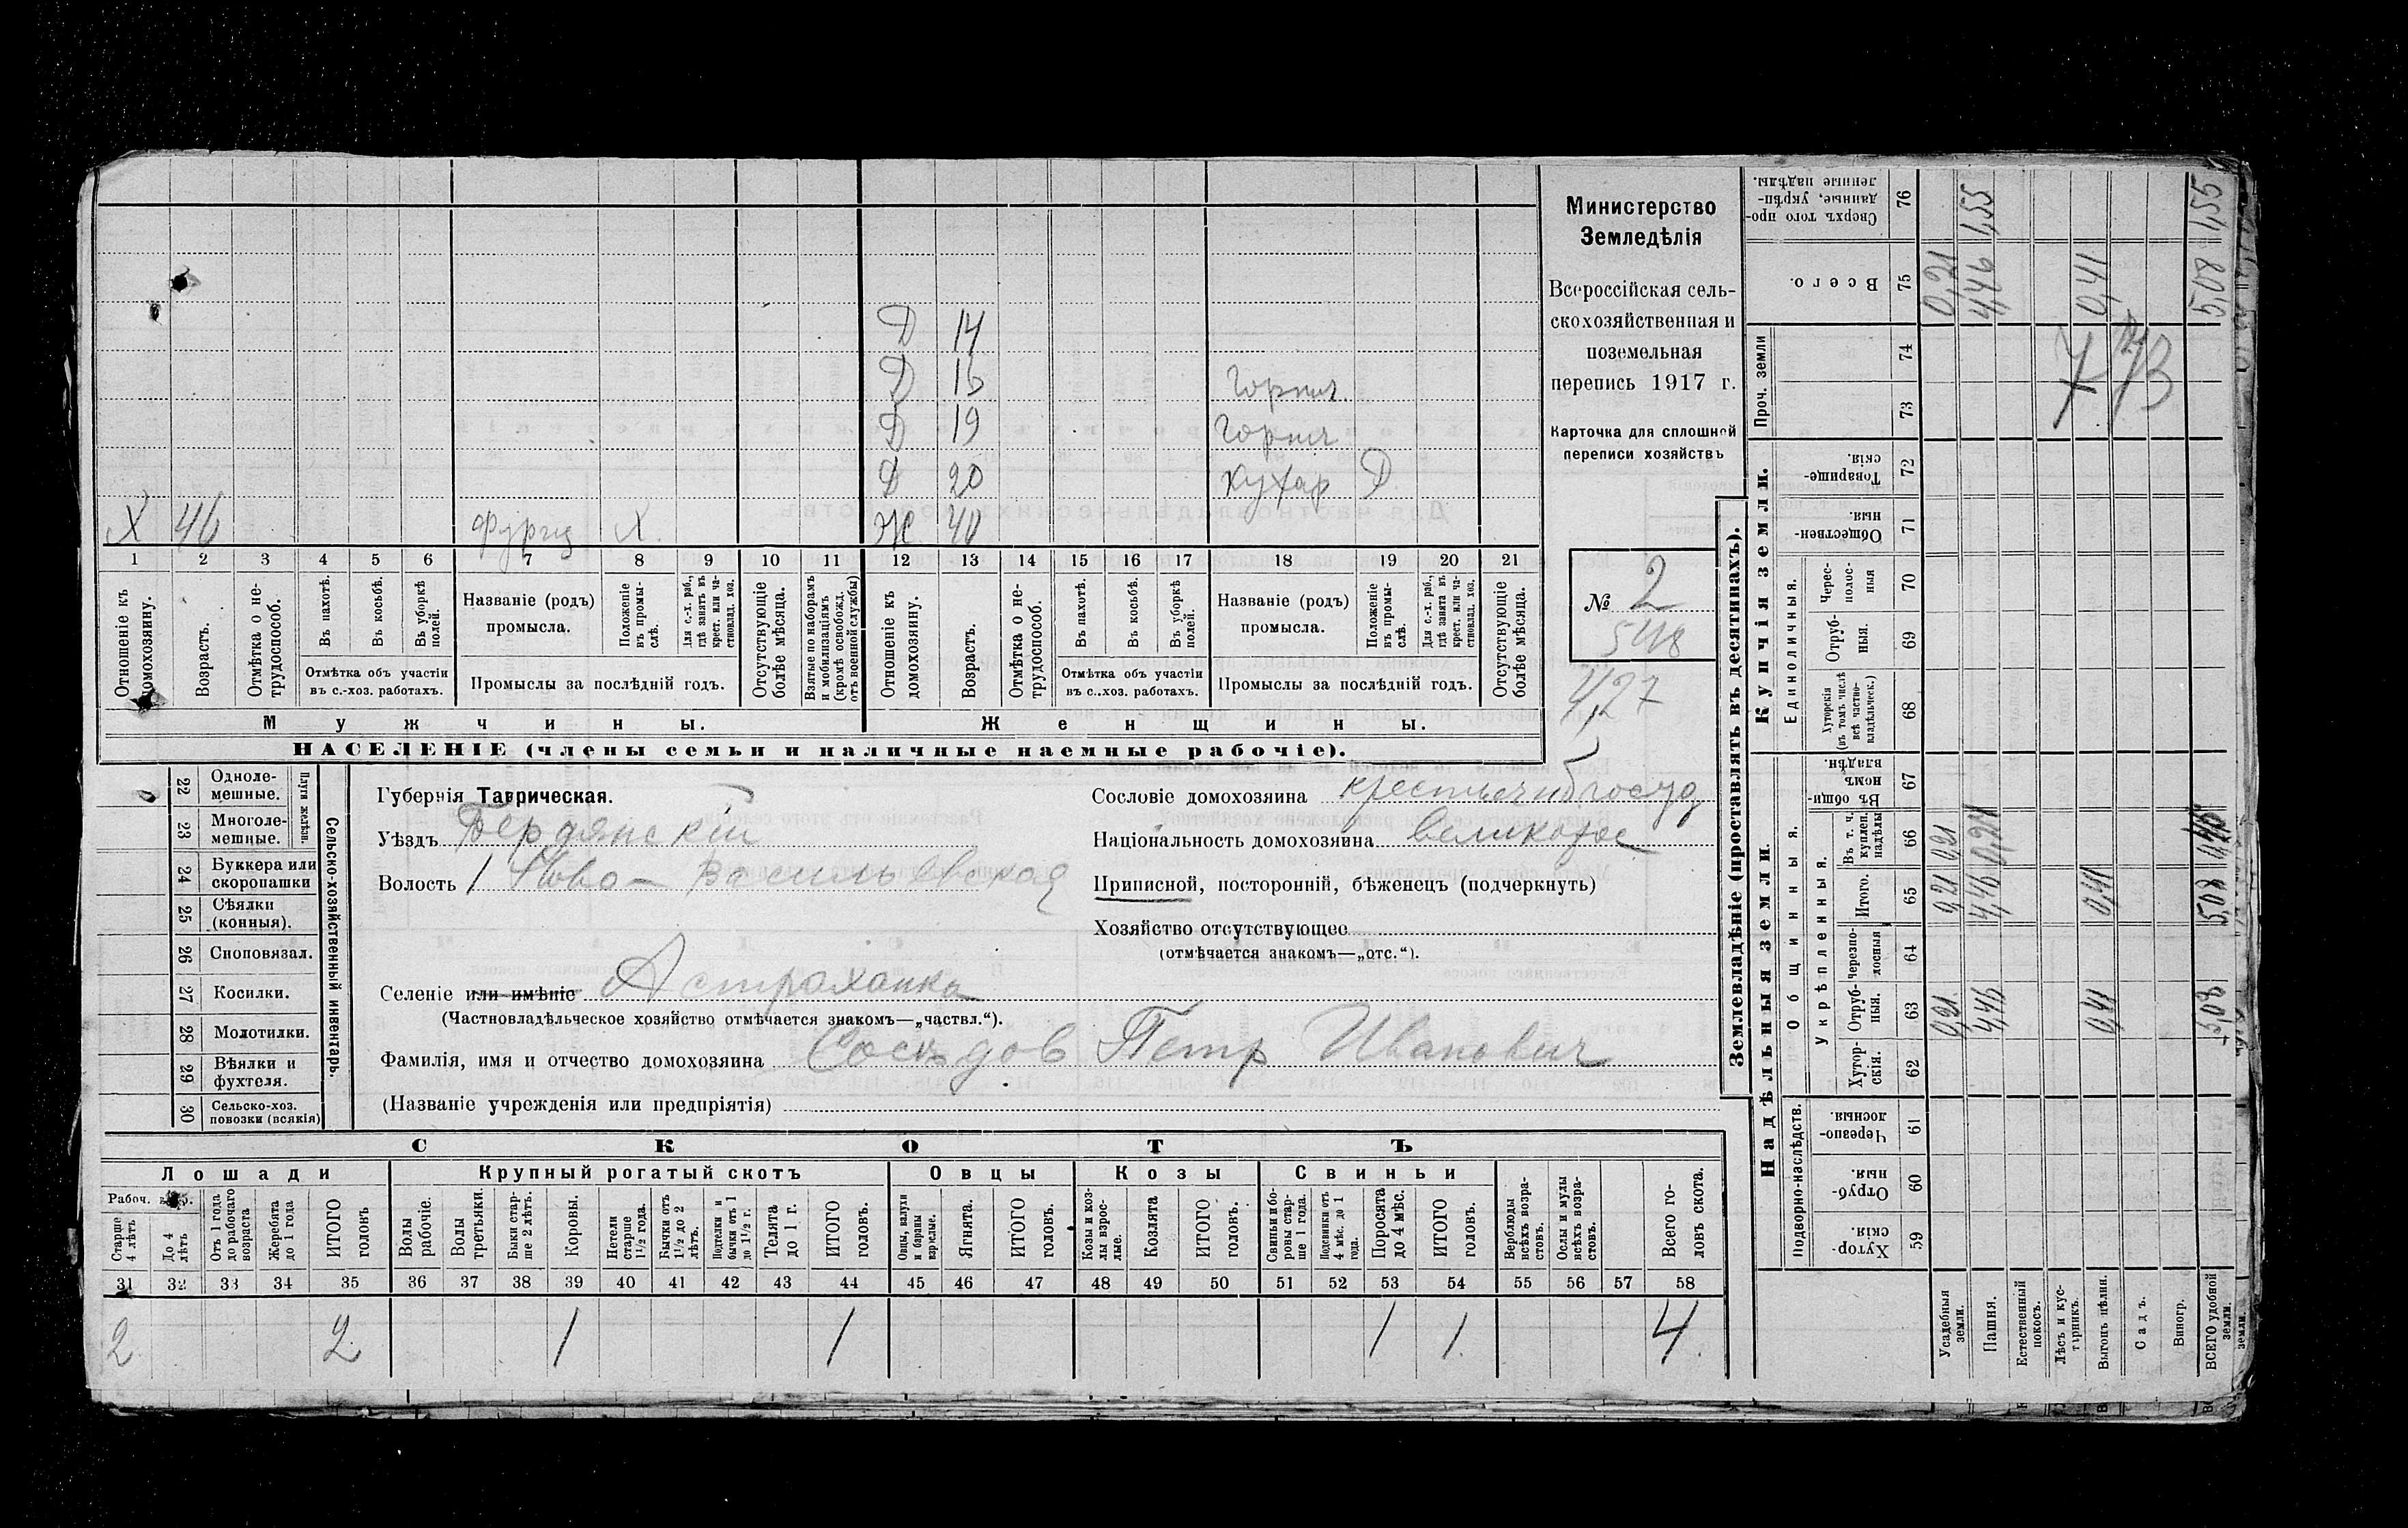 Д 14
Д 15 Горнич.
Д 19 Горнич
Д 20 Кухар Д
Х 46 фургщ Х Ж 40
1 2 3 4 5 6 7 8 9 10 11 12 13 14 15 16 17 18 19 20 21
Отношеніе къ домохозяину.
Возрастъ.
Отмѣтка о нетрудоспособ.
Въ пахотѣ.
Въ косьбѣ.
Въ уборкѣ полей.
Отмѣтка объ участіи въ с.-хоз. работахъ.
Названіе (родъ) промысла.
Положеніе въ промыслѣ.
Для с.-х. раб., гдѣ занятъ въ крест. или частновлад. хоз.
Промыслы за послѣдній годъ.
Отсутствующіе болѣе мѣсяца.
Взятые по наборамъ и мобилизаціямъ (кромѣ освобожд. отъ военной службы)
Отношеніе къ домохозяину.
Возрастъ.
Отмѣтка о нетрудоспособ.
Въ пахотѣ.
Въ косьбѣ.
Въ уборкѣ полей.
Отмѣтка объ участіи въ с..хоз. работахъ.
Названіе (родъ) промысла.
Положеніе въ промыслѣ.
Для с.-х. раб., гдѣ занята въ крест. или частновлад. хоз.
Промыслы за послѣдній годъ.
Отсутствующіе болѣе мѣсяца.
Мужчины.
Женщины.
НАСЕЛЕНІЕ (члены семьи и наличные наемные рабочіе).
Министерство
Земледѣлія
Всероссійская сель-
скохозяйственная и
поземельная
перепись 1917 г.
Карточка для сплошной
переписи хозяйствъ
№ 2
548
4,27
Сельско-хозяйственный инвентарь.
Плуги желѣзн.
22 Однолемешные.
23 Многолемешные.
24 Буккера или скоропашки
25 Сѣялки (конныя).
26 Сноповязал.
27 Косилки.
28 Молотилки.
29 Вѣялки и фухтеля.
30 Сельско-хоз. повозки (всякія)
Губернія Таврическая.
Уѣздъ Бердянскій
Волость Ново-Васильевская
Селеніе или имѣніе Астраханка
(Частновладѣльческое хозяйство отмѣчается знакомъ—„частвл.“).
Фамилія, имя и отчество домохозяина Петр Иванович
(Названіе учрежденія или предпріятія)
Сословіе домохозяина
Національность домохозяина великорос
Приписной, посторонній, бѣженецъ (подчеркнуть)
Хозяйство отсутствующее
(отмѣчается знакомъ—„отс.“).
СКОТЪ
Лошади Крупный рогатый скотъ Овцы Козы Свиньи
Рабоч. возр.
Старше 4 лѣтъ
До 4 лѣтъ
Отъ 1 года до рабочаго возраста
Жеребята до 1 года
ИТОГО головъ
Волы рабочіе.
Волы третьяки.
Быки старше 2 лѣтъ.
Коровы.
Нетели старше 1½ года.
Бычки отъ 1½ до 2 лѣтъ.
Подтелки и бычки отъ 1 до 1½ г.
Телята до 1 г.
ИТОГО головъ.
Овцы, валухи и бараны взрослые.
Ягнята.
ИТОГО головъ.
Козы и козлы взрослые.
Козлята
ИТОГО головъ.
Свиньи и боровы старше 1 года.
Подсвинки отъ 4 мѣс. до 1 года.
Поросята до 4 мѣс.
ИТОГО головъ.
Верблюды всѣхъ возрастовъ.
Ослы и мулы всѣхъ возрастовъ.
Всего головъ скота.
31 32 33 34 35 36 37 38 39 40 41 42 43 44 45 46 47 48 49 50 51 52 53 54 55 56 57 58
2 2 1 1 1 1. 4.
Землевладѣніе (проставлять въ десятинахъ).
Надѣльныя земли.
Купчія земли.
Проч. земли
Подворно-наслѣдств.
Общинныя.
Укрѣпленныя.
Единоличныя.
Хуторскія. 59
Отрубныя. 60
Черезполосныя. 61
Хуторскія. 62
Отрубныя. 63
Черезполосныя 64
Итого. 65
Въ т. ч. куплен. надѣлы 66
Въ общинномъ владѣн. 67
Хуторскія (въ томъ числѣ всѣ частновладѣльческ.) 68
Отрубныя. 69
Чересполосныя 70
Общественныя. 71
Товарищескія. 72
73
74
Всего. 75
Сверхъ того проданные, укрѣпленные надѣлы. 76
Усадебныя земли. 0,21 0,21 0,21 0,21
Пашня. 4,46 4,46 0,24 4,46 1,55
Естественный покосъ.
Лѣсъ и кустарникъ.
Выгонъ цѣлин. 0,41 0,41 0,41
Садъ.
Виногр.
ВСЕГО удобной земли. 5,08 5,08 5,08 1,55